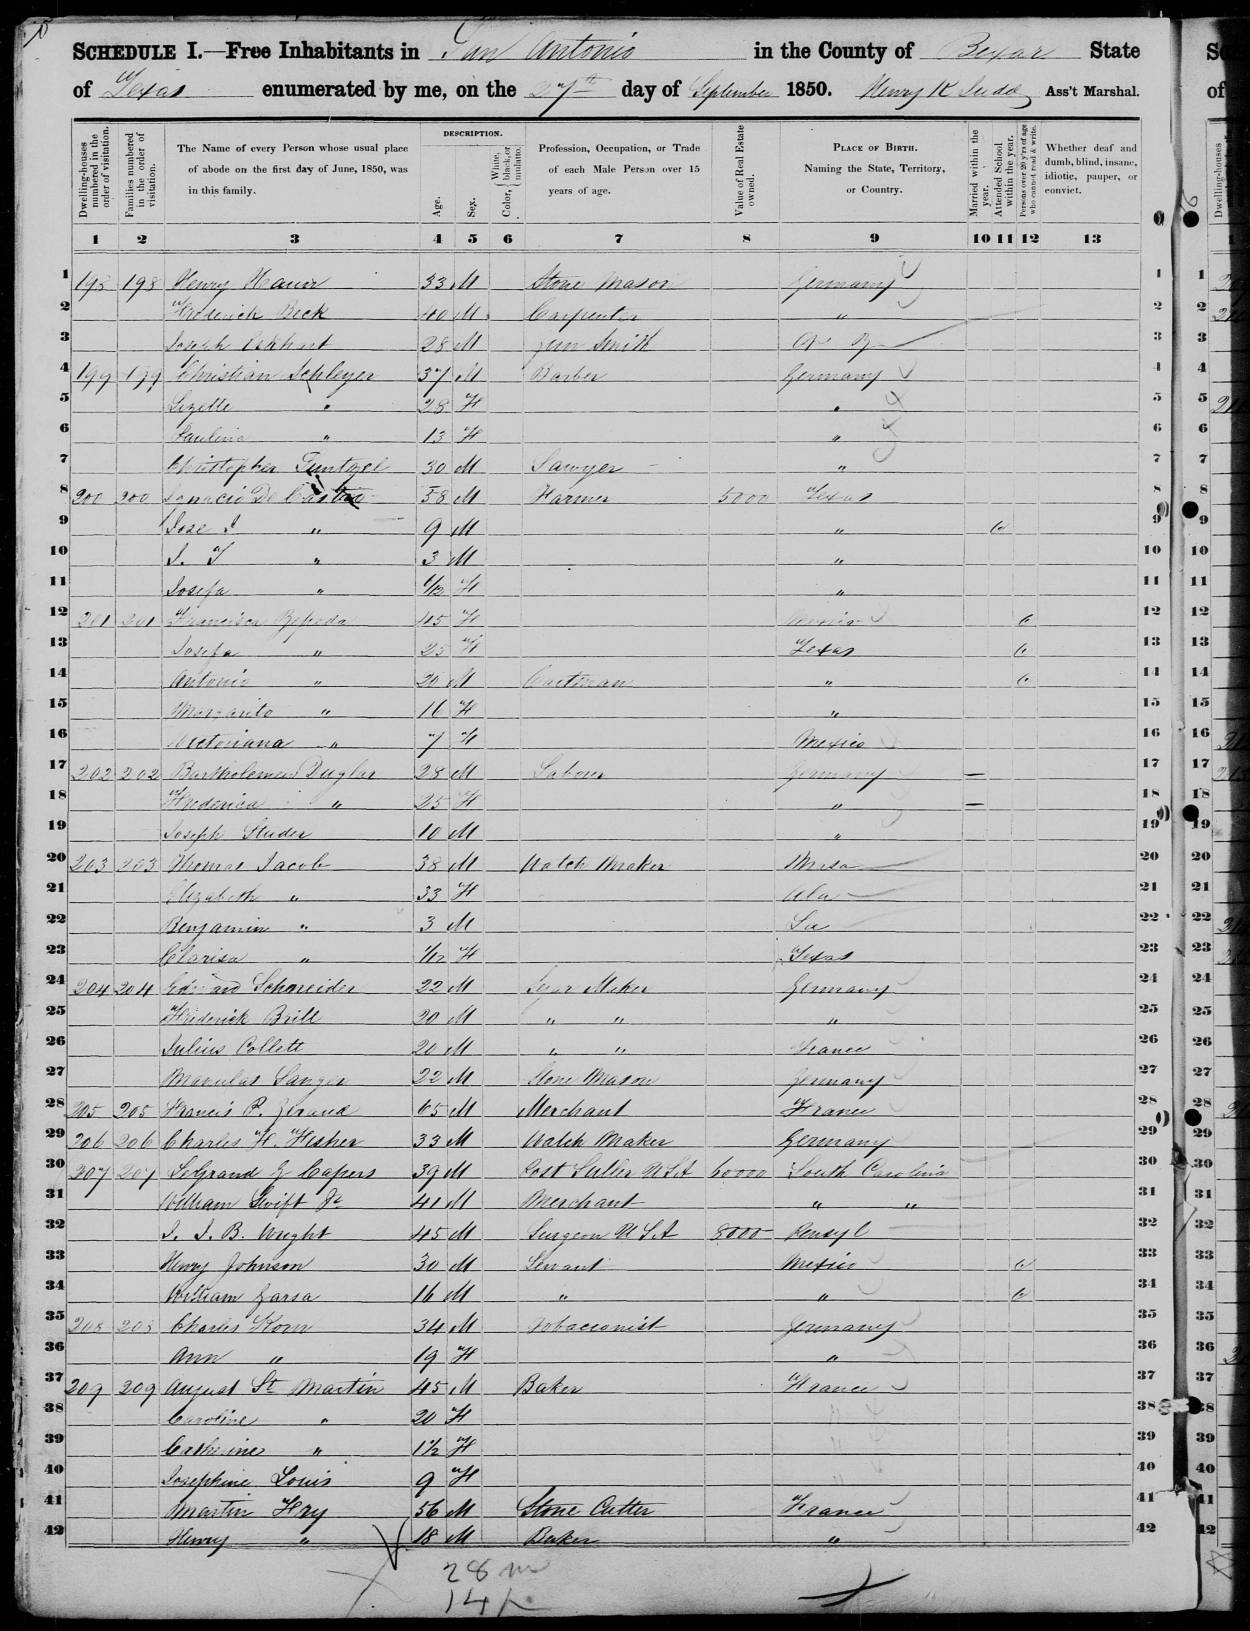 SCHEDULE I.—Free Inhabitants in San Antonio in the County of Bexar State
of Texas enumerated by me, on the 27th day of September 1850. Henry K Judd Ass't Marshal.
Dwelling-houses numbered in the order of visitation.
Families numbered in the order of visitation.
The Name of every Person whose usual place of abode on the first day of June, 1850, was in this family.
DESCRIPTION.
Age.
Sex.
Color, { White, black, or mulatto.
Profession, Occupation, or Trade of each Male Person over 15 years of age.
Value of Real Estate owned.
PLACE OF BIRTH. Naming the State, Territory, or Country.
Married within the year.
Attended School within the year.
Persons over 20 y'rs of age who cannot read & write.
Whether deaf and dumb, blind, insane, idiotic, pauper, or convict.
1 2 3 4 5 6 7 8 9 10 11 12 13
1 198 198 Henry 33 M Stone Mason Germany 1
2 Frederick Beck 40 M Carpenter " 2
3 Joseph 28 M Smith 3
4 199 199 Christian Schleyer 37 M Barber Germany 4
5 Lizette " 28 F " 5
6 Paulina " 13 F " 6
7 Christopher 30 M Sawyer " 7
8 200 200 Ignacio De Castro 58 M Farmer 5000 Texas 8
9 Jose I " 9 M " 9
10 J. T " 3 M " 10
11 Josefa " /12 F " 11
12 201 201 Francisca Zepeda 45 F Mexico 12
13 Josefa " 25 F Texas 13
14 Antonio " 20 M Cartman " 14
15 Margarita " 16 F " 15
16 Victoriana " 7 F Mexico 16
17 202 202 Bartholemew 28 M Laborer Germany 17
18 Frederica " 25 F " 18
19 Joseph Studer 10 M " 19
20 203 203 Thomas Jacob 38 M Watch Maker 20
21 Elizabeth " 33 F Ala 21
22 Benjamin " 3 M La 22
23 Clarisa " 1/12 F Texas 23
24 204 204 Edward Schneider 22 M Segar Maker Germany 24
25 Frederick Brill 20 M " " " 25
26 Julius Collett 20 M " " France 26
27 Sanger 22 M Stone Mason Germany 27
28 205 205 Francis P. Giraud 65 M Merchant France 28
29 206 206 Charles F. Fisher 33 M Watch Maker Germany 29
30 207 207 LeGrand G Capers 39 M Post Sutler U S A 60000 South Carolina 30
31 William Swift Jr 41 M Merchant " " 31
32 J. J. B. Wright 45 M Surgeon U S A 8000 Pensyl 32
33 Henry Johnson 30 M Servant Mexico 33
34 William Garsa 16 M " " 34
35 208 208 Charles Korn 34 M Tobacconist Germany 35
36 Ann " 19 F " 36
37 209 209 August St Martin 45 M Baker France 37
38 Caroline " 20 F " 38
39 Catherine " 1½ F " 39
40 Josephine Louis 9 F " 40
41 Martin Hay 56 M Stone Cutter France 41
42 Henry " 18 M Baker " 42
28 m
14 f